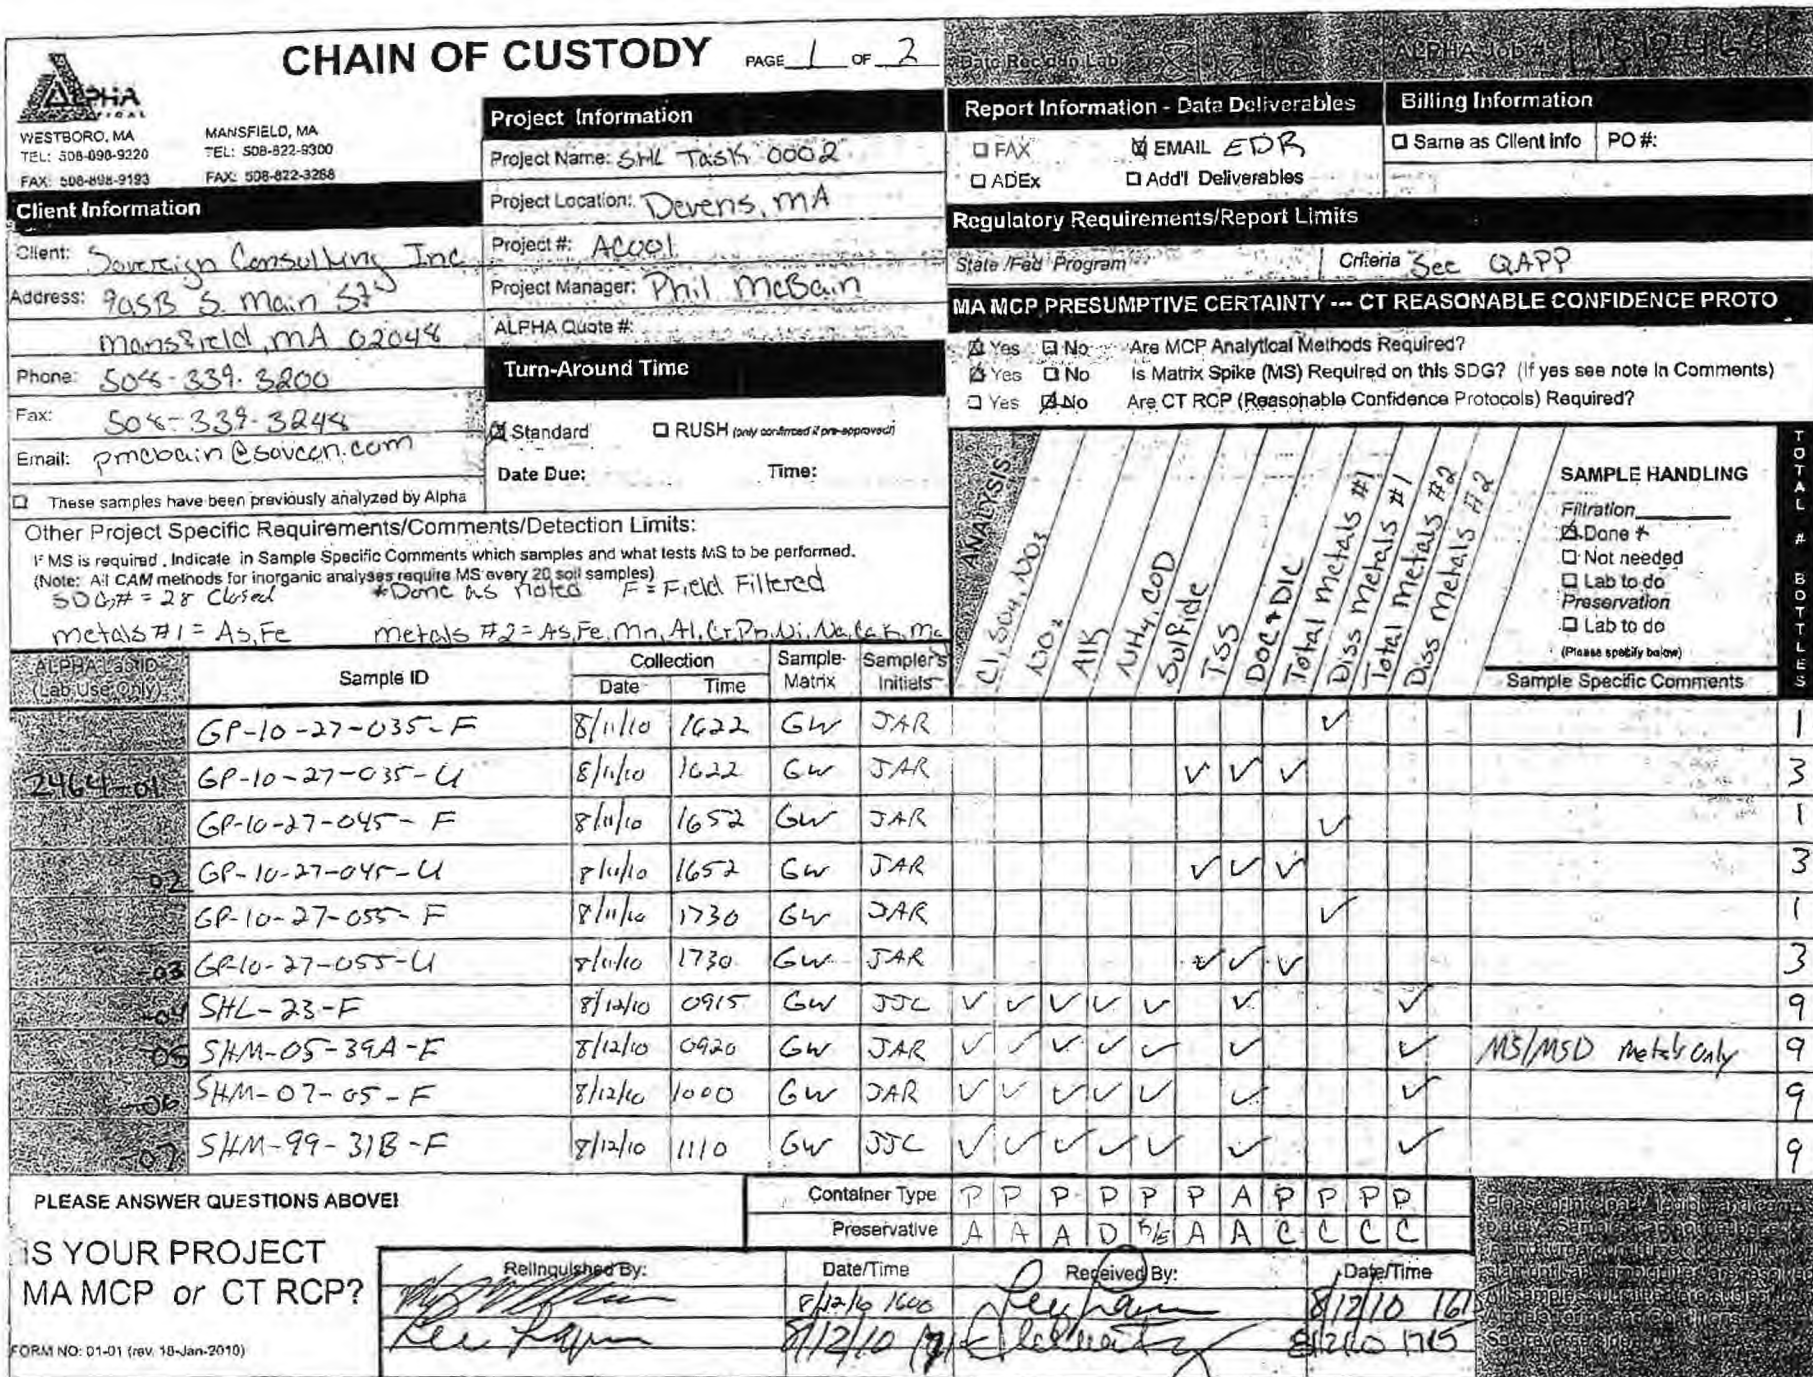 CHAIN OF CUSTODY PAGE 1 OF 2
Date Rec'd in Lab: ALPHA Job #:
ALPHA
WESTBORO, MA MANSFIELD, MA
TEL: 508-898-9220 TEL: 508-822-9300
FAX: 508-898-9193 FAX: 508-822-3288
Client Information
Client: Sovereign Consulting Inc
Address: 905B S. Main St
Mansfield, MA 02048
Phone: 508-339-3200
Fax: 508-339-3248
Email: pmcbain@sovcon.com
☐ These samples have been previously analyzed by Alpha
Project Information
Project Name: SHL Task 0002
Project Location: Devens, MA
Project #: AC001
Project Manager: Phil McBain
ALPHA Quote #:
Turn-Around Time
☒ Standard ☐ RUSH (only confirmed if pre-approved!)
Date Due: Time:
Report Information - Data Deliverables
☐ FAX ☒ EMAIL EDR
☐ ADEx ☐ Add'l Deliverables
Billing Information
☐ Same as Client info PO #:
Regulatory Requirements/Report Limits
State /Fed Program Criteria See QAPP
MA MCP PRESUMPTIVE CERTAINTY --- CT REASONABLE CONFIDENCE PROTO
☒ Yes ☐ No Are MCP Analytical Methods Required?
☒ Yes ☐ No Is Matrix Spike (MS) Required on this SDG? (If yes see note in Comments)
☐ Yes ☒ No Are CT RCP (Reasonable Confidence Protocols) Required?
Other Project Specific Requirements/Comments/Detection Limits:
If MS is required , Indicate in Sample Specific Comments which samples and what tests MS to be performed.
(Note: All CAM methods for inorganic analyses require MS every 20 soil samples)
SDG# = 28 Closed *Done as noted F = Field Filtered
metals #1 = As, Fe metals #2 = As, Fe, Mn, Al, Cr, Pb, Ni, Na, Ca, K, Mg
ANALYSIS
Cl, SO4, NO3
NO2
Alk
NH4, COD
Sulfide
TSS
DOC + DIC
Total metals #1
Diss metals #1
Total metals #2
Diss metals #2
SAMPLE HANDLING
Filtration
☒ Done *
☐ Not needed
☐ Lab to do
Preservation
☐ Lab to do
(Please specify below)
Sample Specific Comments
TOTAL # BOTTLES
ALPHA Lab ID (Lab Use Only) Sample ID Collection Date Time Sample Matrix Sampler's Initials
GP-10-27-035-F 8/11/10 1622 GW JAR ✓ 1
2464-01 GP-10-27-035-U 8/11/10 1622 GW JAR ✓ ✓ ✓ 3
GP-10-27-045-F 8/11/10 1652 GW JAR ✓ 1
-02 GP-10-27-045-U 8/11/10 1652 GW JAR ✓ ✓ ✓ 3
GP-10-27-055-F 8/11/10 1730 GW JAR ✓ 1
-03 GP-10-27-055-U 8/11/10 1730 GW JAR ✓ ✓ ✓ 3
-04 SHL-23-F 8/12/10 0915 GW JJC ✓ ✓ ✓ ✓ ✓ ✓ ✓ 9
-05 SHM-05-39A-F 8/12/10 0920 GW JAR ✓ ✓ ✓ ✓ ✓ ✓ ✓ MS/MSD Metals Only 9
-06 SHM-07-05-F 8/12/10 1000 GW JAR ✓ ✓ ✓ ✓ ✓ ✓ ✓ 9
-07 SHM-99-31B-F 8/12/10 1110 GW JJC ✓ ✓ ✓ ✓ ✓ ✓ ✓ 9
PLEASE ANSWER QUESTIONS ABOVE!
Container Type P P P P P P A P P P P
Preservative A A A D A A C C C C
IS YOUR PROJECT
MA MCP or CT RCP?
Relinquished By: Date/Time Received By: Date/Time
8/12/10 1600 8/12/10 161
8/12/10 8/12/10 1715
FORM NO: 01-01 (rev. 18-Jan-2010)